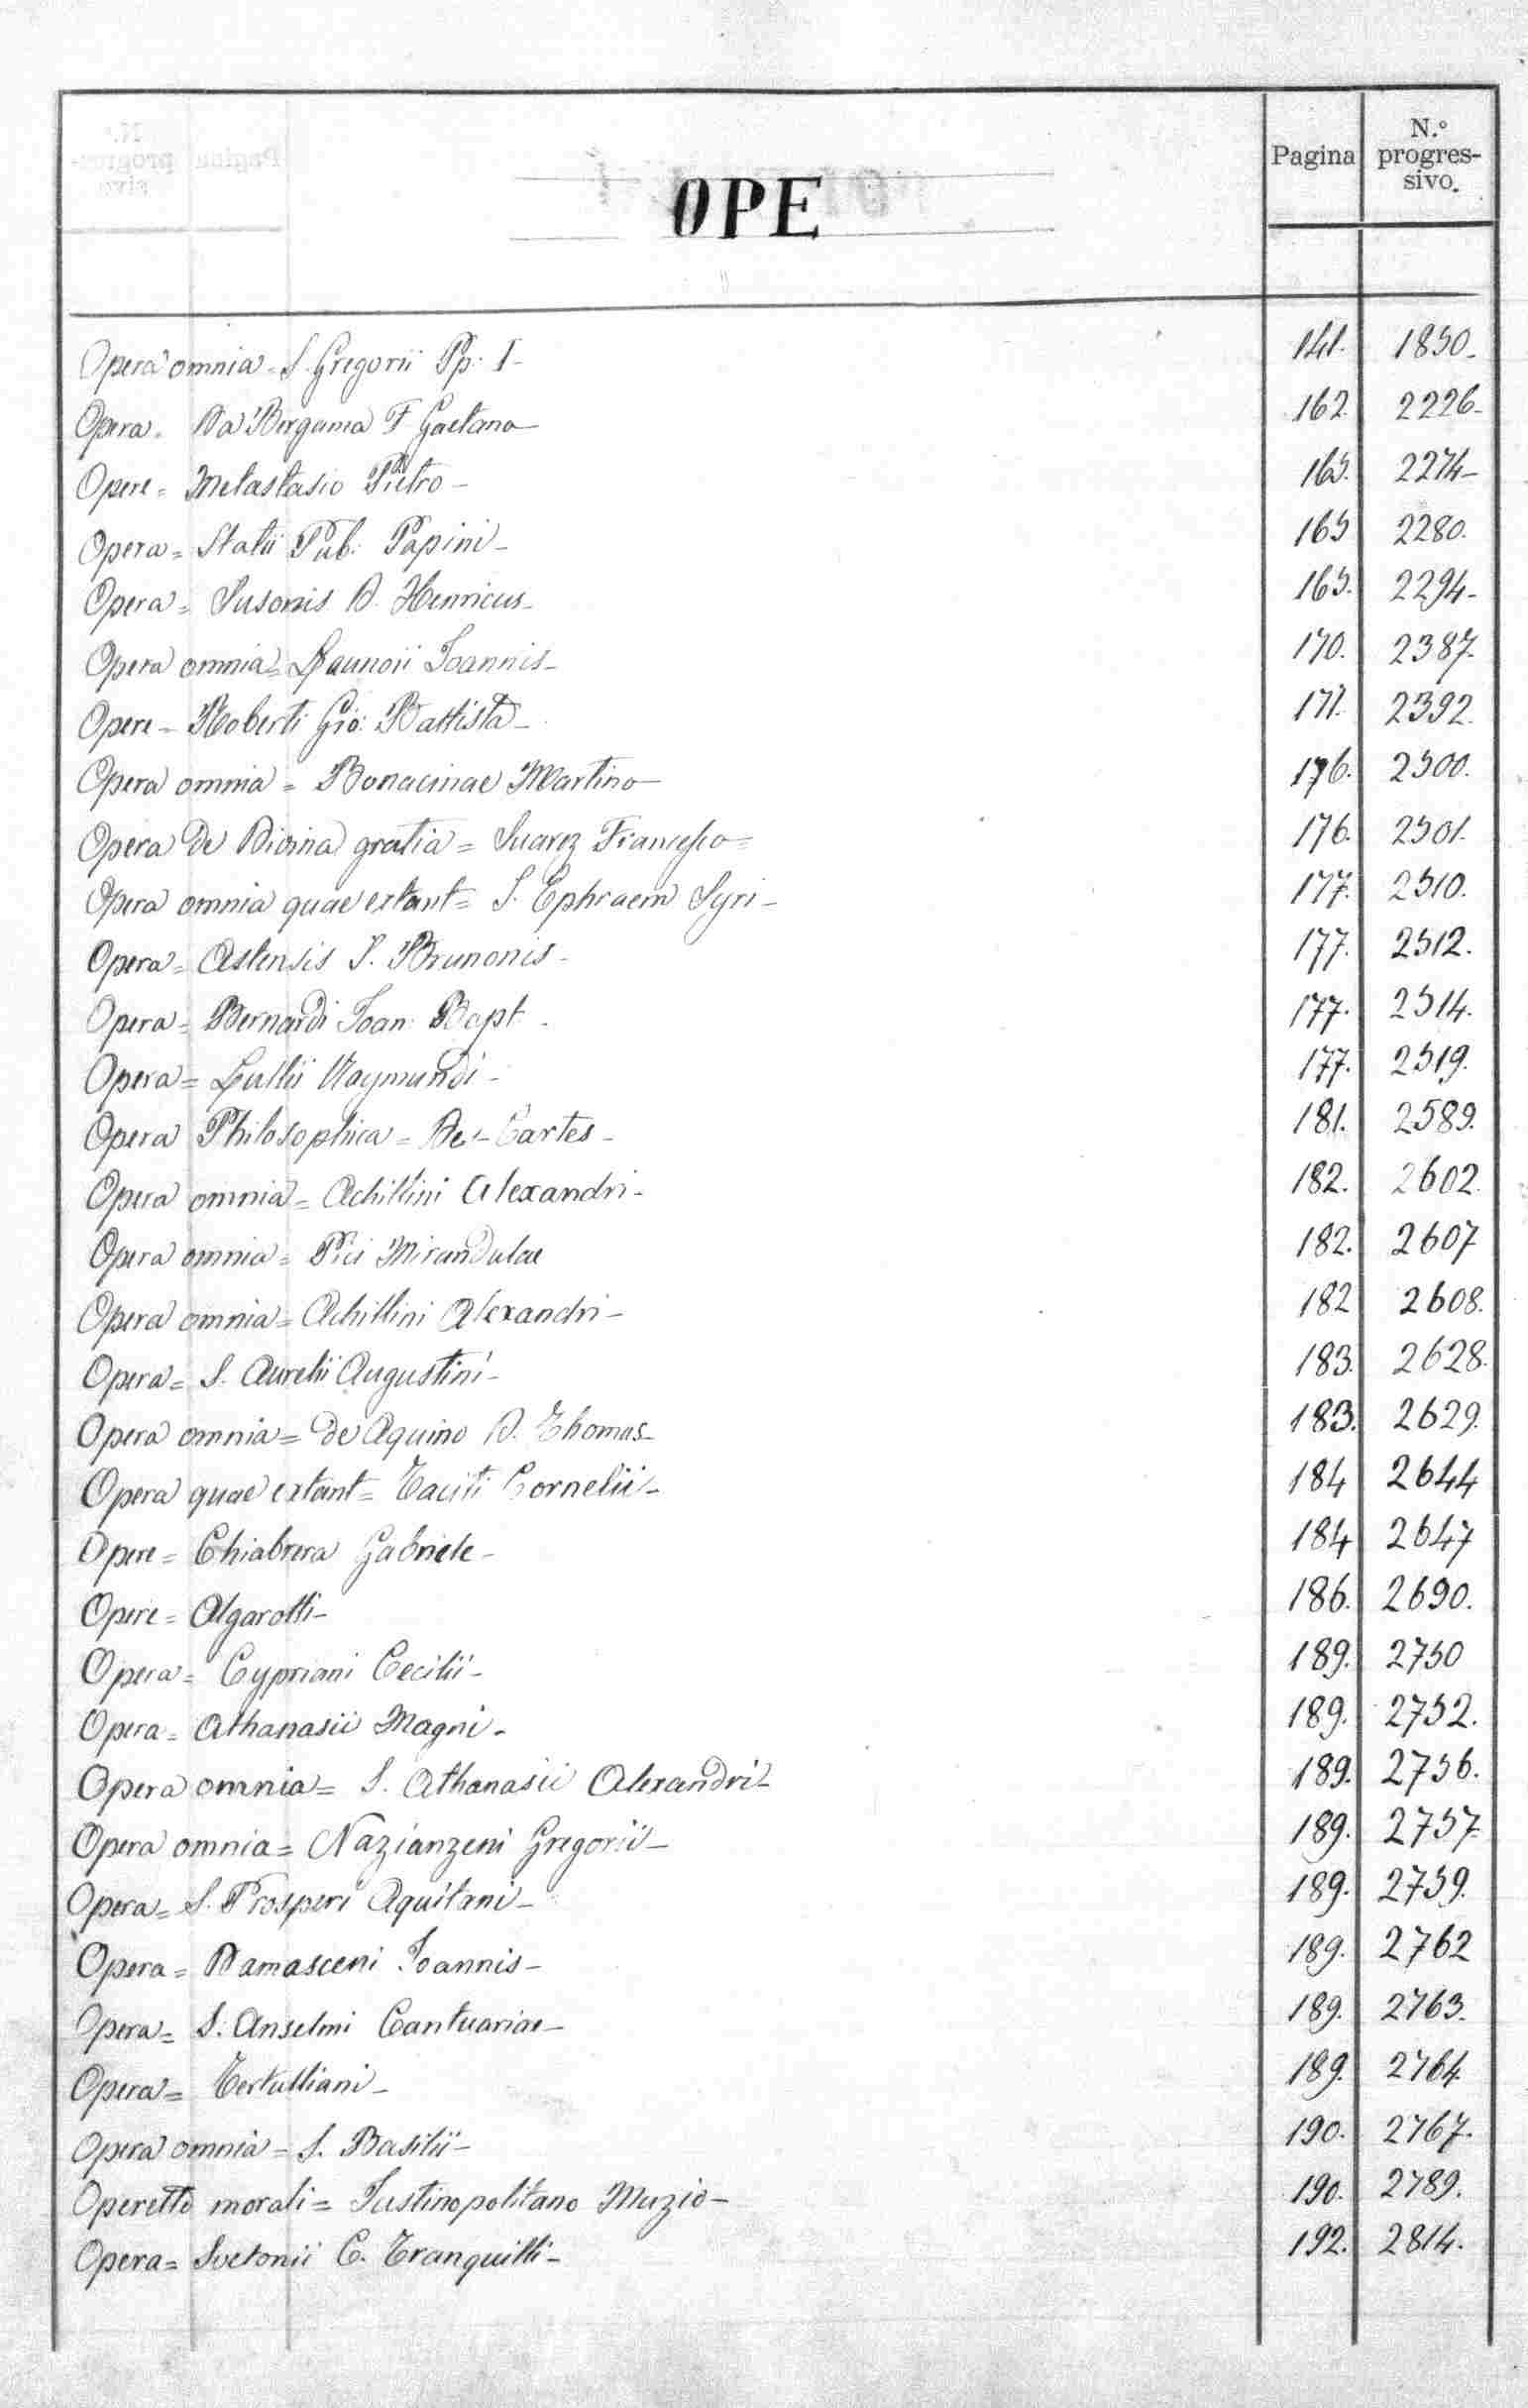 Pagina
N.º progres-
sivo.
OPE
Opera omnia = S. Gregorii Pp: I - 141. 1850.
Opera = Da Bergamo F. Gaetano - 162. 2226 -
Opere = Metastasio Pietro - 165. 2274 -
Opera = Statii Pub: Papini - 165 2280.
Opera = Susonis D. Henricus - 165. 2294 -
Opera omnia = Launoii Ioannis - 170. 2387.
Opere - Roberti Gio: Battista - 171. 2392.
Opera omnia = Bonacinae Martino - 176. 2500.
Opera de Divina gratia = Suarez Francesco = 176. 2501.
Opera omnia quae extant = S. Ephraem Syri - 177. 2510.
Opera = Astensis S. Brunonis - 177. 2512.
Opera = Bernardi Ioan: Bapt. - 177. 2514.
Opera = Lullii Raymundi - 177. 2519.
Opera Philosophica = Des-Cartes - 181. 2589.
Opera omnia = Achillini Alexandri - 182. 2602.
Opera omnia = Pici Mirandulae 182. 2607
Opera omnia = Achillini Alexandri - 182 2608.
Opera = S. Aurelii Augustini - 183. 2628.
Opera omnia = de Aquino D. Thomas - 183. 2629.
Opera quae extant = Taciti Cornelii - 184 2644
Opere = Chiabrera Gabriele - 184 2647
Opere = Algarotti - 186. 2690.
Opera = Cypriani Cecilii - 189. 2750
Opera = Athanasii Magni - 189. 2752.
Opera omnia = S. Athanasii Alexandri - 189. 2756.
Opera omnia = Nazianzeni Gregorii - 189. 2757.
Opera = S. Prosperi Aquitani - 189. 2759.
Opera = Damasceni Ioannis - 189. 2762
Opera = S. Anselmi Cantuariae - 189. 2763.
Opera = Tertulliani - 189. 2764
Opera omnia = S. Basilii - 190. 2767.
Operette morali = Iustinopolitano Muzio - 190. 2789.
Opera = Svetonii C. Tranquilli - 192. 2814.